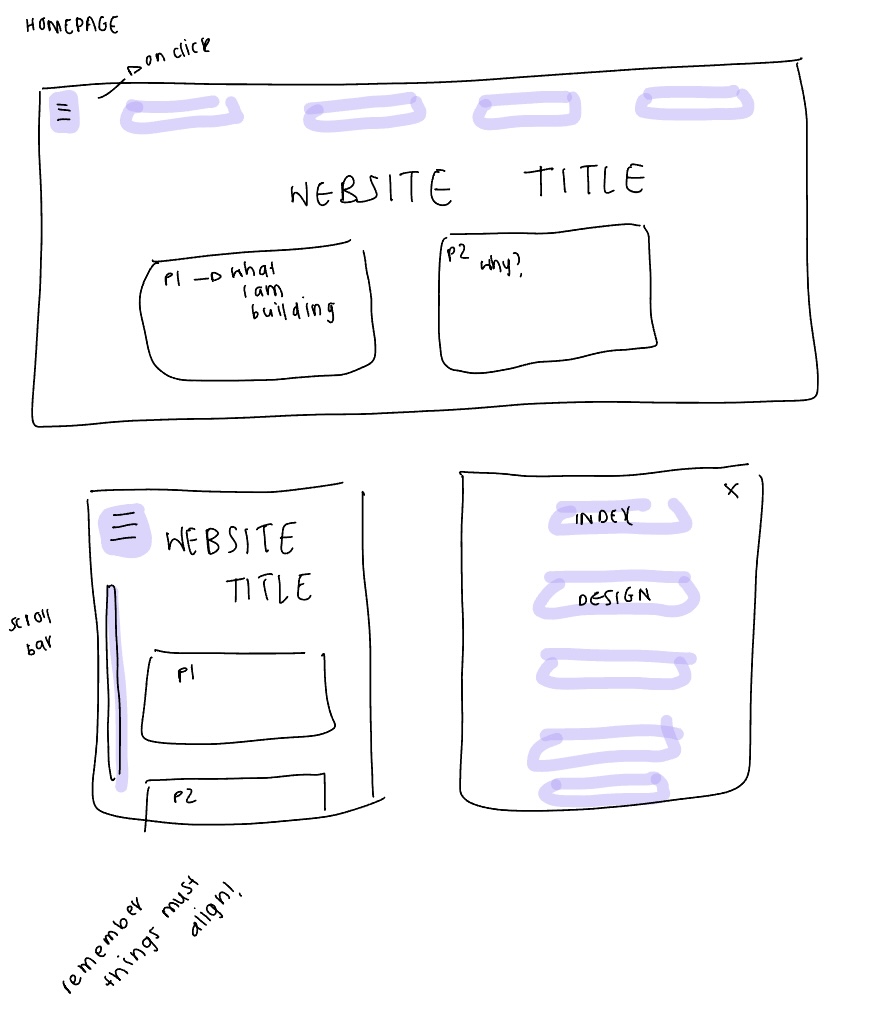 HOMEPAGE
on click
WEBSITE TITLE
P1 what
i am
building
P2
why?
WEBSITE
TITLE
scroll
bar
P1
P2
X
INDEX
DESIGN
remember
things must
allign!